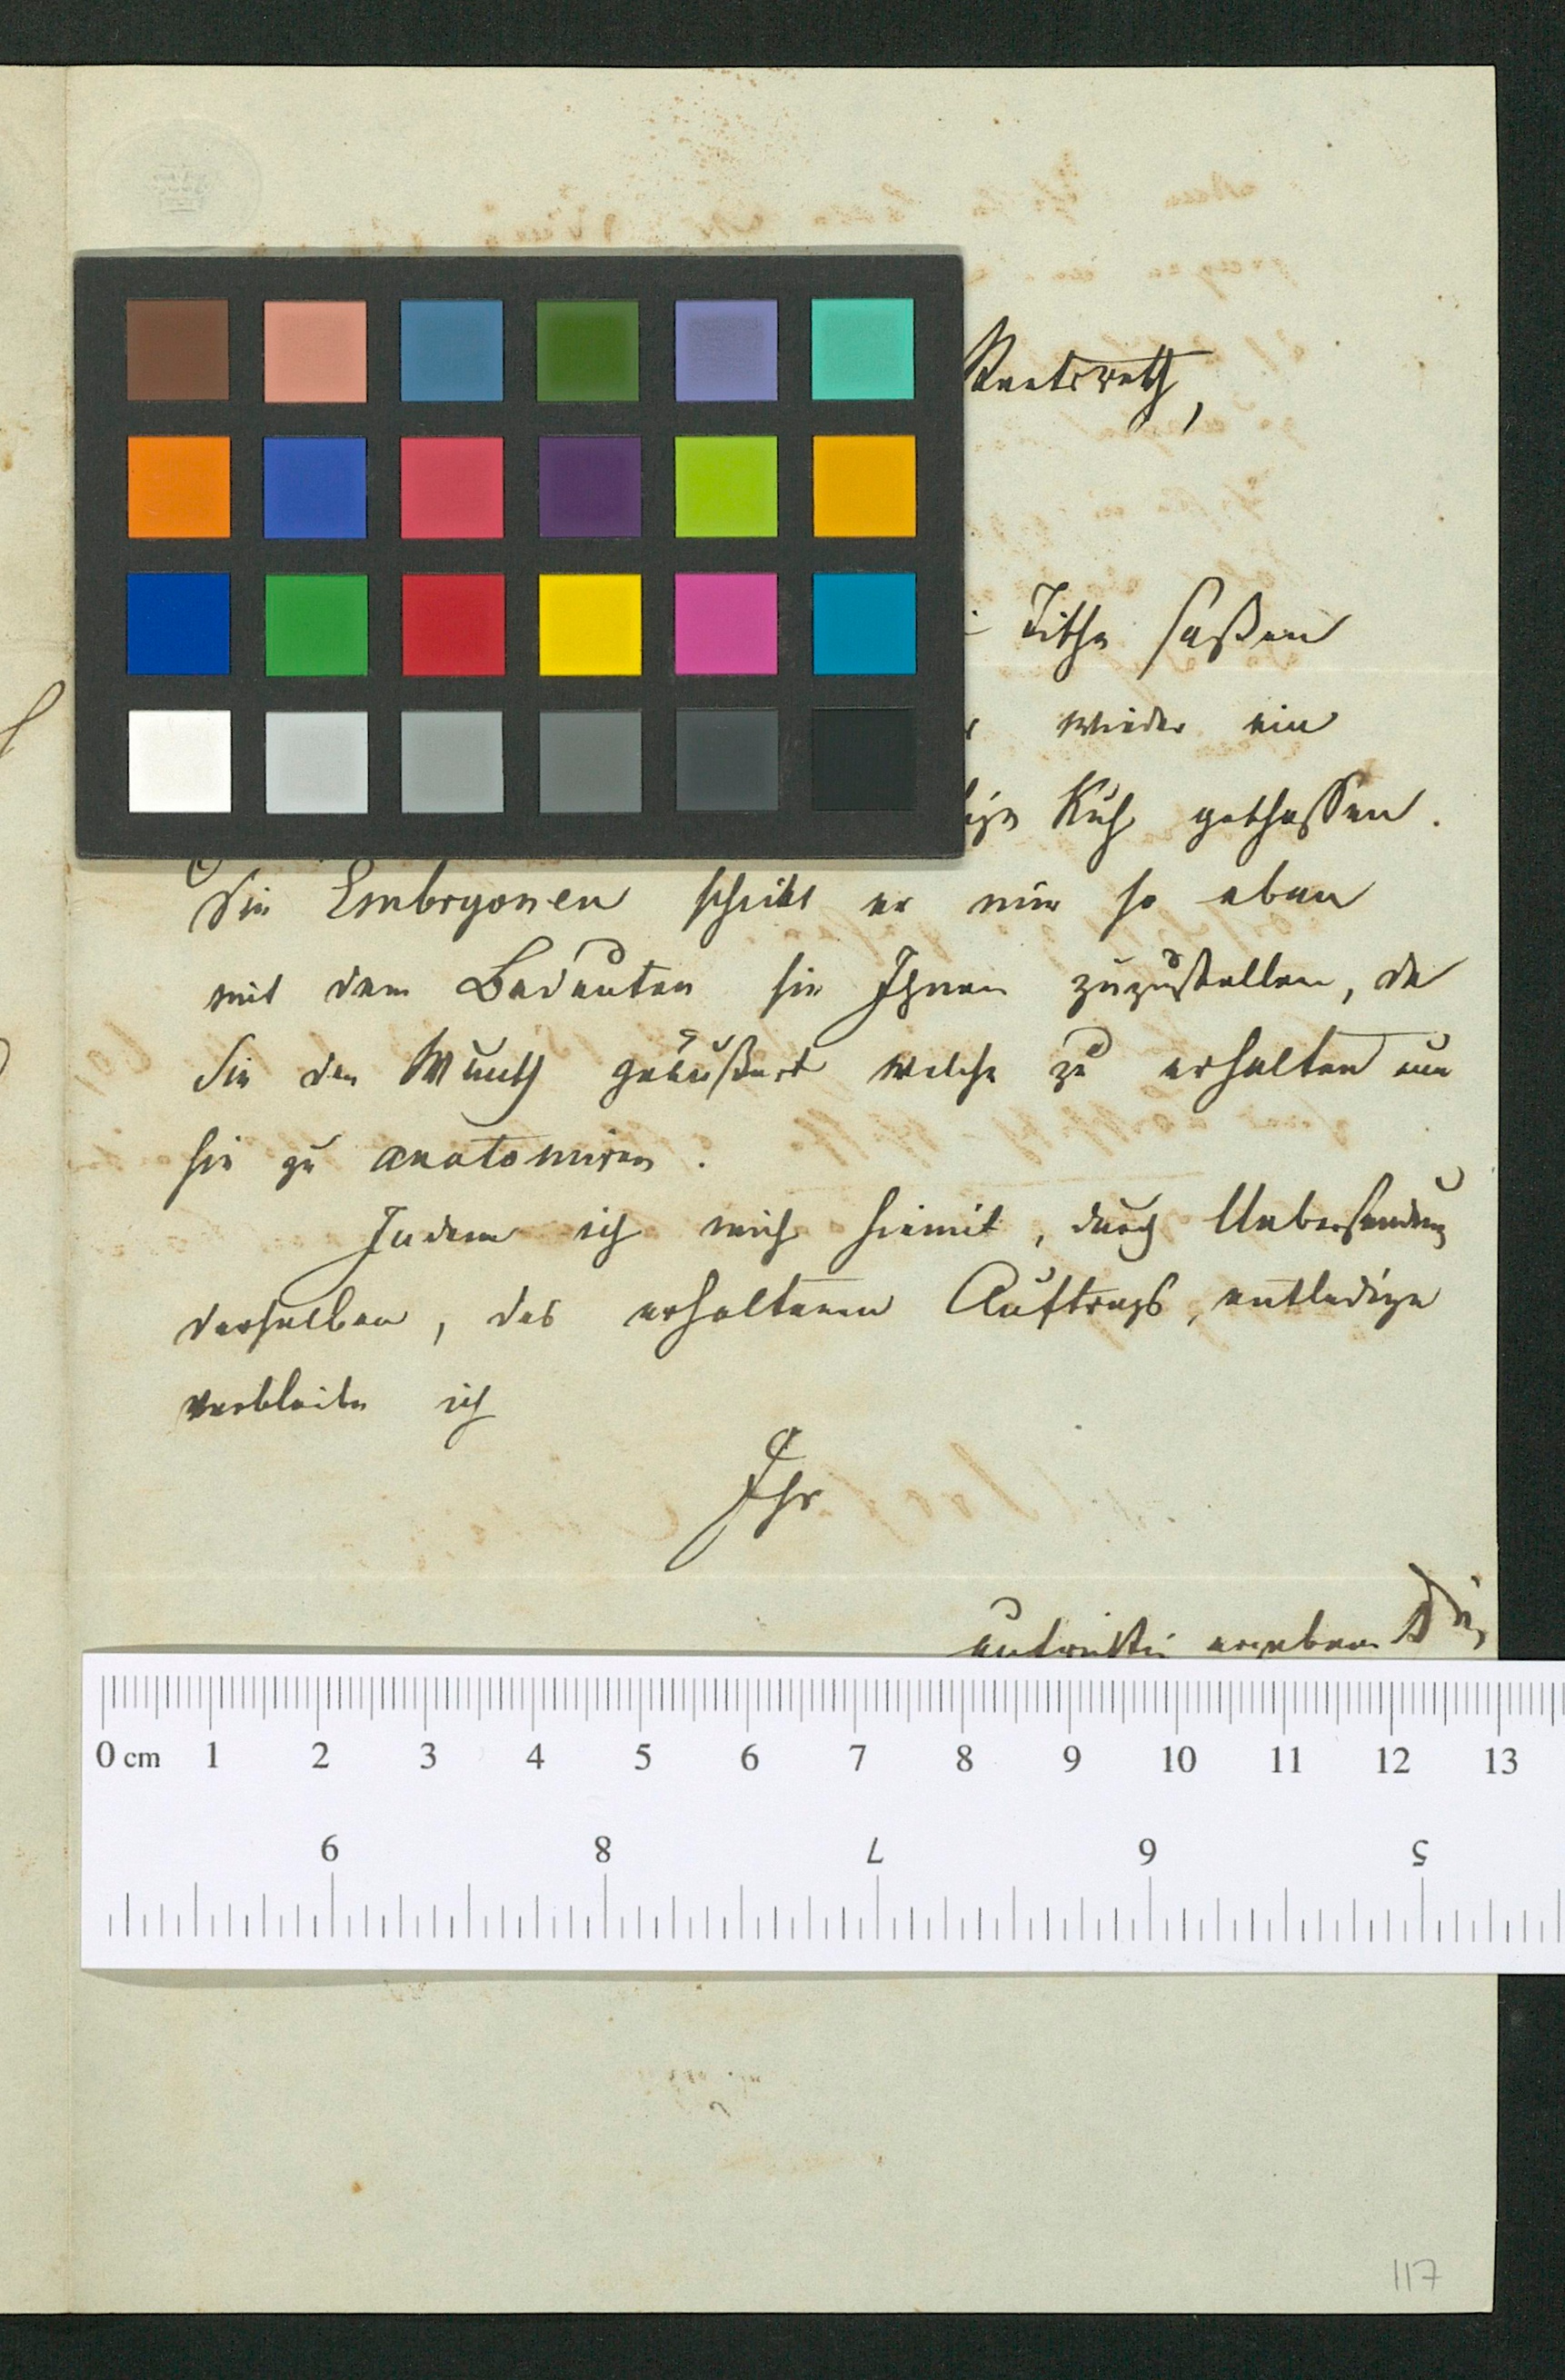 Staatsrath,
Tische saßen
wieder ein
Kuh geschossen.
Die Embryonen schickt er mir so eben
mit dem Bedeuten sie Ihnen zuzustellen, da
Sie den Wunsch geäußert welche zu erhalten um
sie zu anatomiren.
Indem ich mich hiemit, durch Uebersendung
derselben, des erhaltenen Auftrags, entledige
verbleibe ich
Ihr
aufrichtig ergebener
0 cm 1 2 3 4 5 6 7 8 9 10 11 12 13
9 8 7 6 5
117